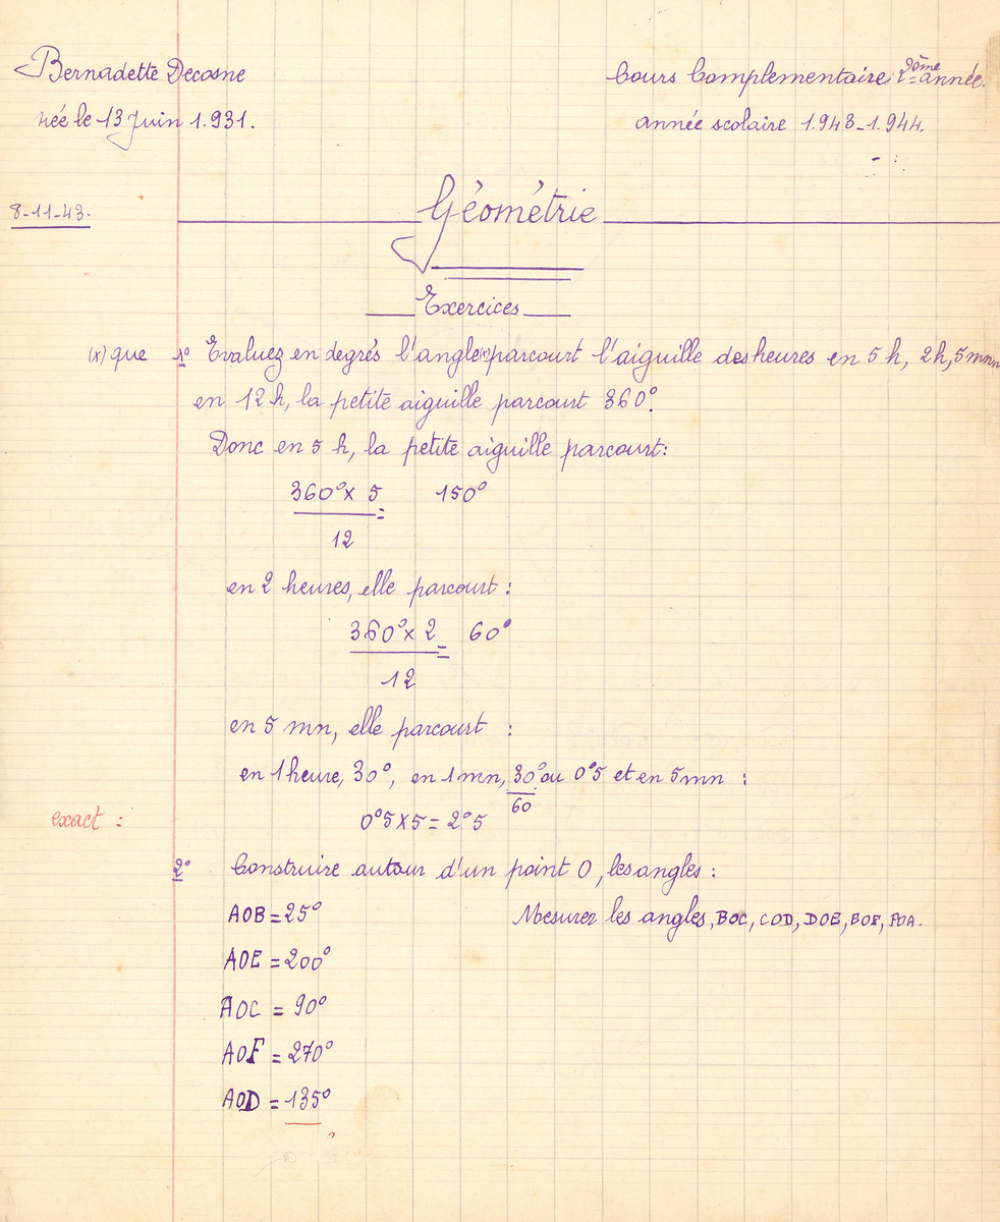 Bernadette Decosne
Cours Complementaire 2ème année.
née le 13 Juin 1.931.
année scolaire 1.943-1.944.
8-11-43.
Géométrie
Exercices
(x) que 1° Evaluez en degrés l'angle (x) parcourt l'aiguille des heures en 5h, 2h, 5mn
en 12h, la petite aiguille parcourt 360°.
Donc en 5 h, la petite aiguille parcourt:
360° x 5 = 150°
12
en 2 heures, elle parcourt :
360° x 2 = 60°
12
en 5 mn, elle parcourt :
en 1 heure, 30°, en 1mn, 30° ou 0°5 et en 5mn :
60
exact :
0°5 x 5 = 2°5
2° Construire autour d'un point O, les angles :
AOB = 25° Mesurer les angles, BOC, COD, DOE, EOF, FOA.
AOE = 200°
AOC = 90°
AOF = 270°
AOD = 135°